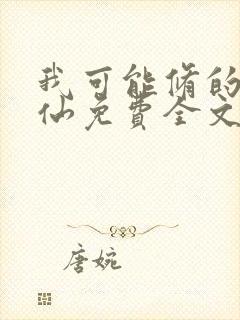 我可能修的
仙免费全文
唐婉